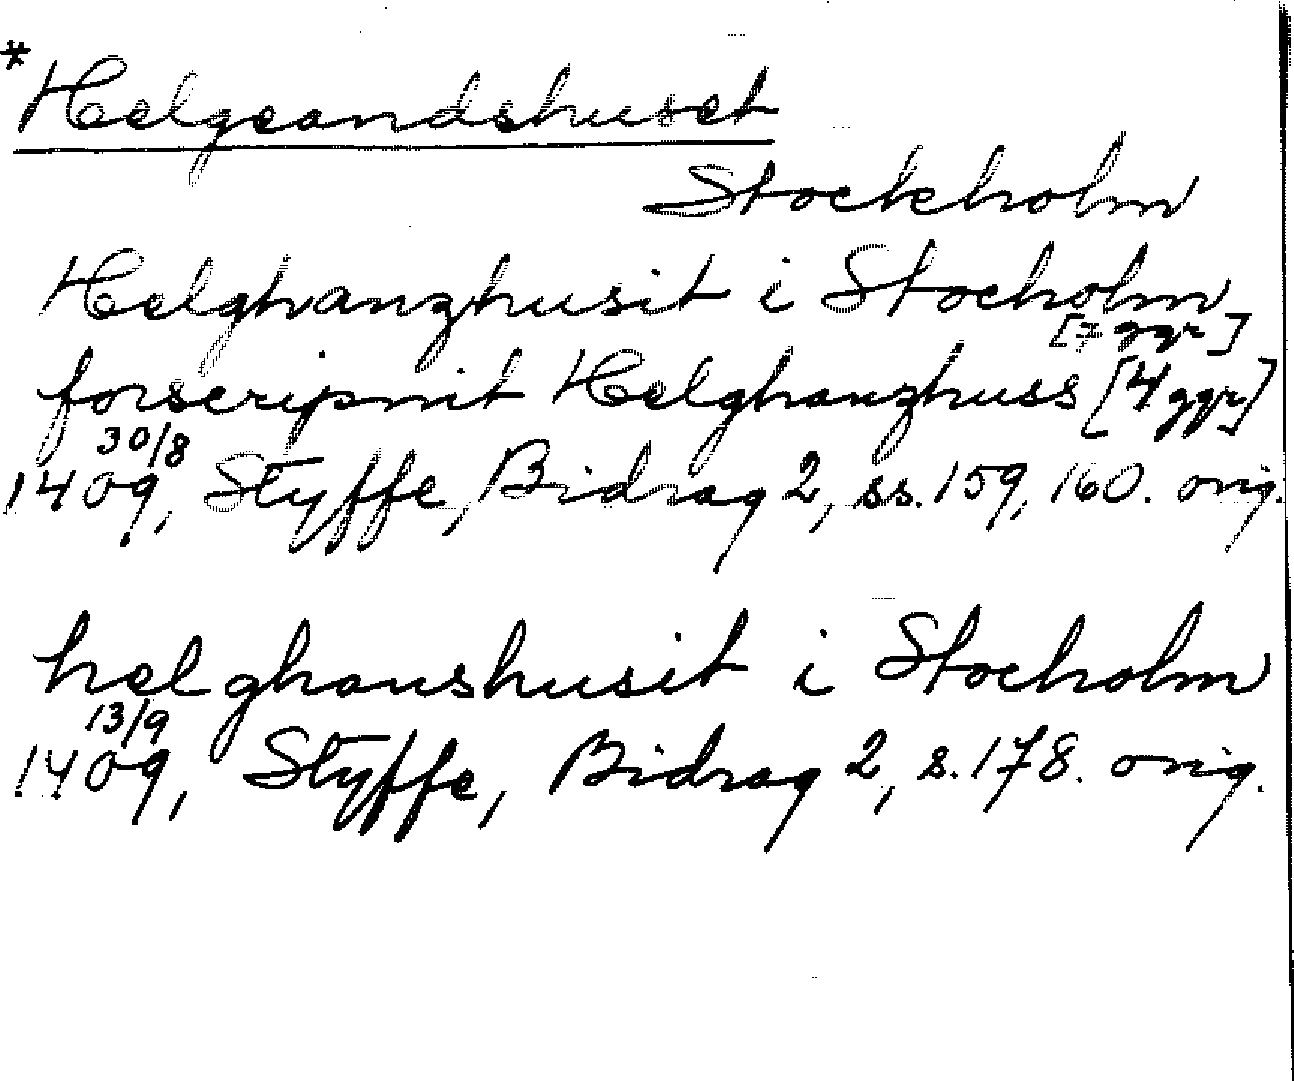 *Helgeandshuset
Stockholm
Helghanzhusit i Stocholm
[7 ggr]
forscripnit Helghanzhuss [4 ggr]
30/8
1409, Styffe, Bidrag 2, ss. 159, 160. orig.
helghanshusit i Stocholm
13/9
1409, Styffe, Bidrag 2, s. 178. orig.